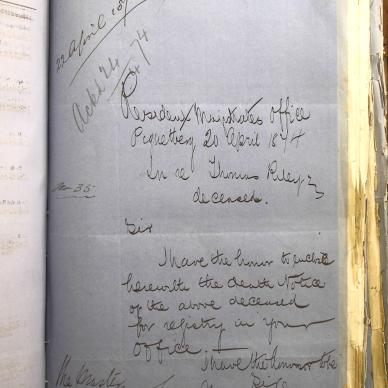 22 April
Ackd 24
Ap 74
Resident Magistrates Office
Piquetberg 20 April 1874
In re Thomas Riley
deceased.
No 35
Sir
I have the honor to enclose
herewith the Death Notice
of the above deceased
for registry in your
Office
I have the honour to be
Sir
The Master